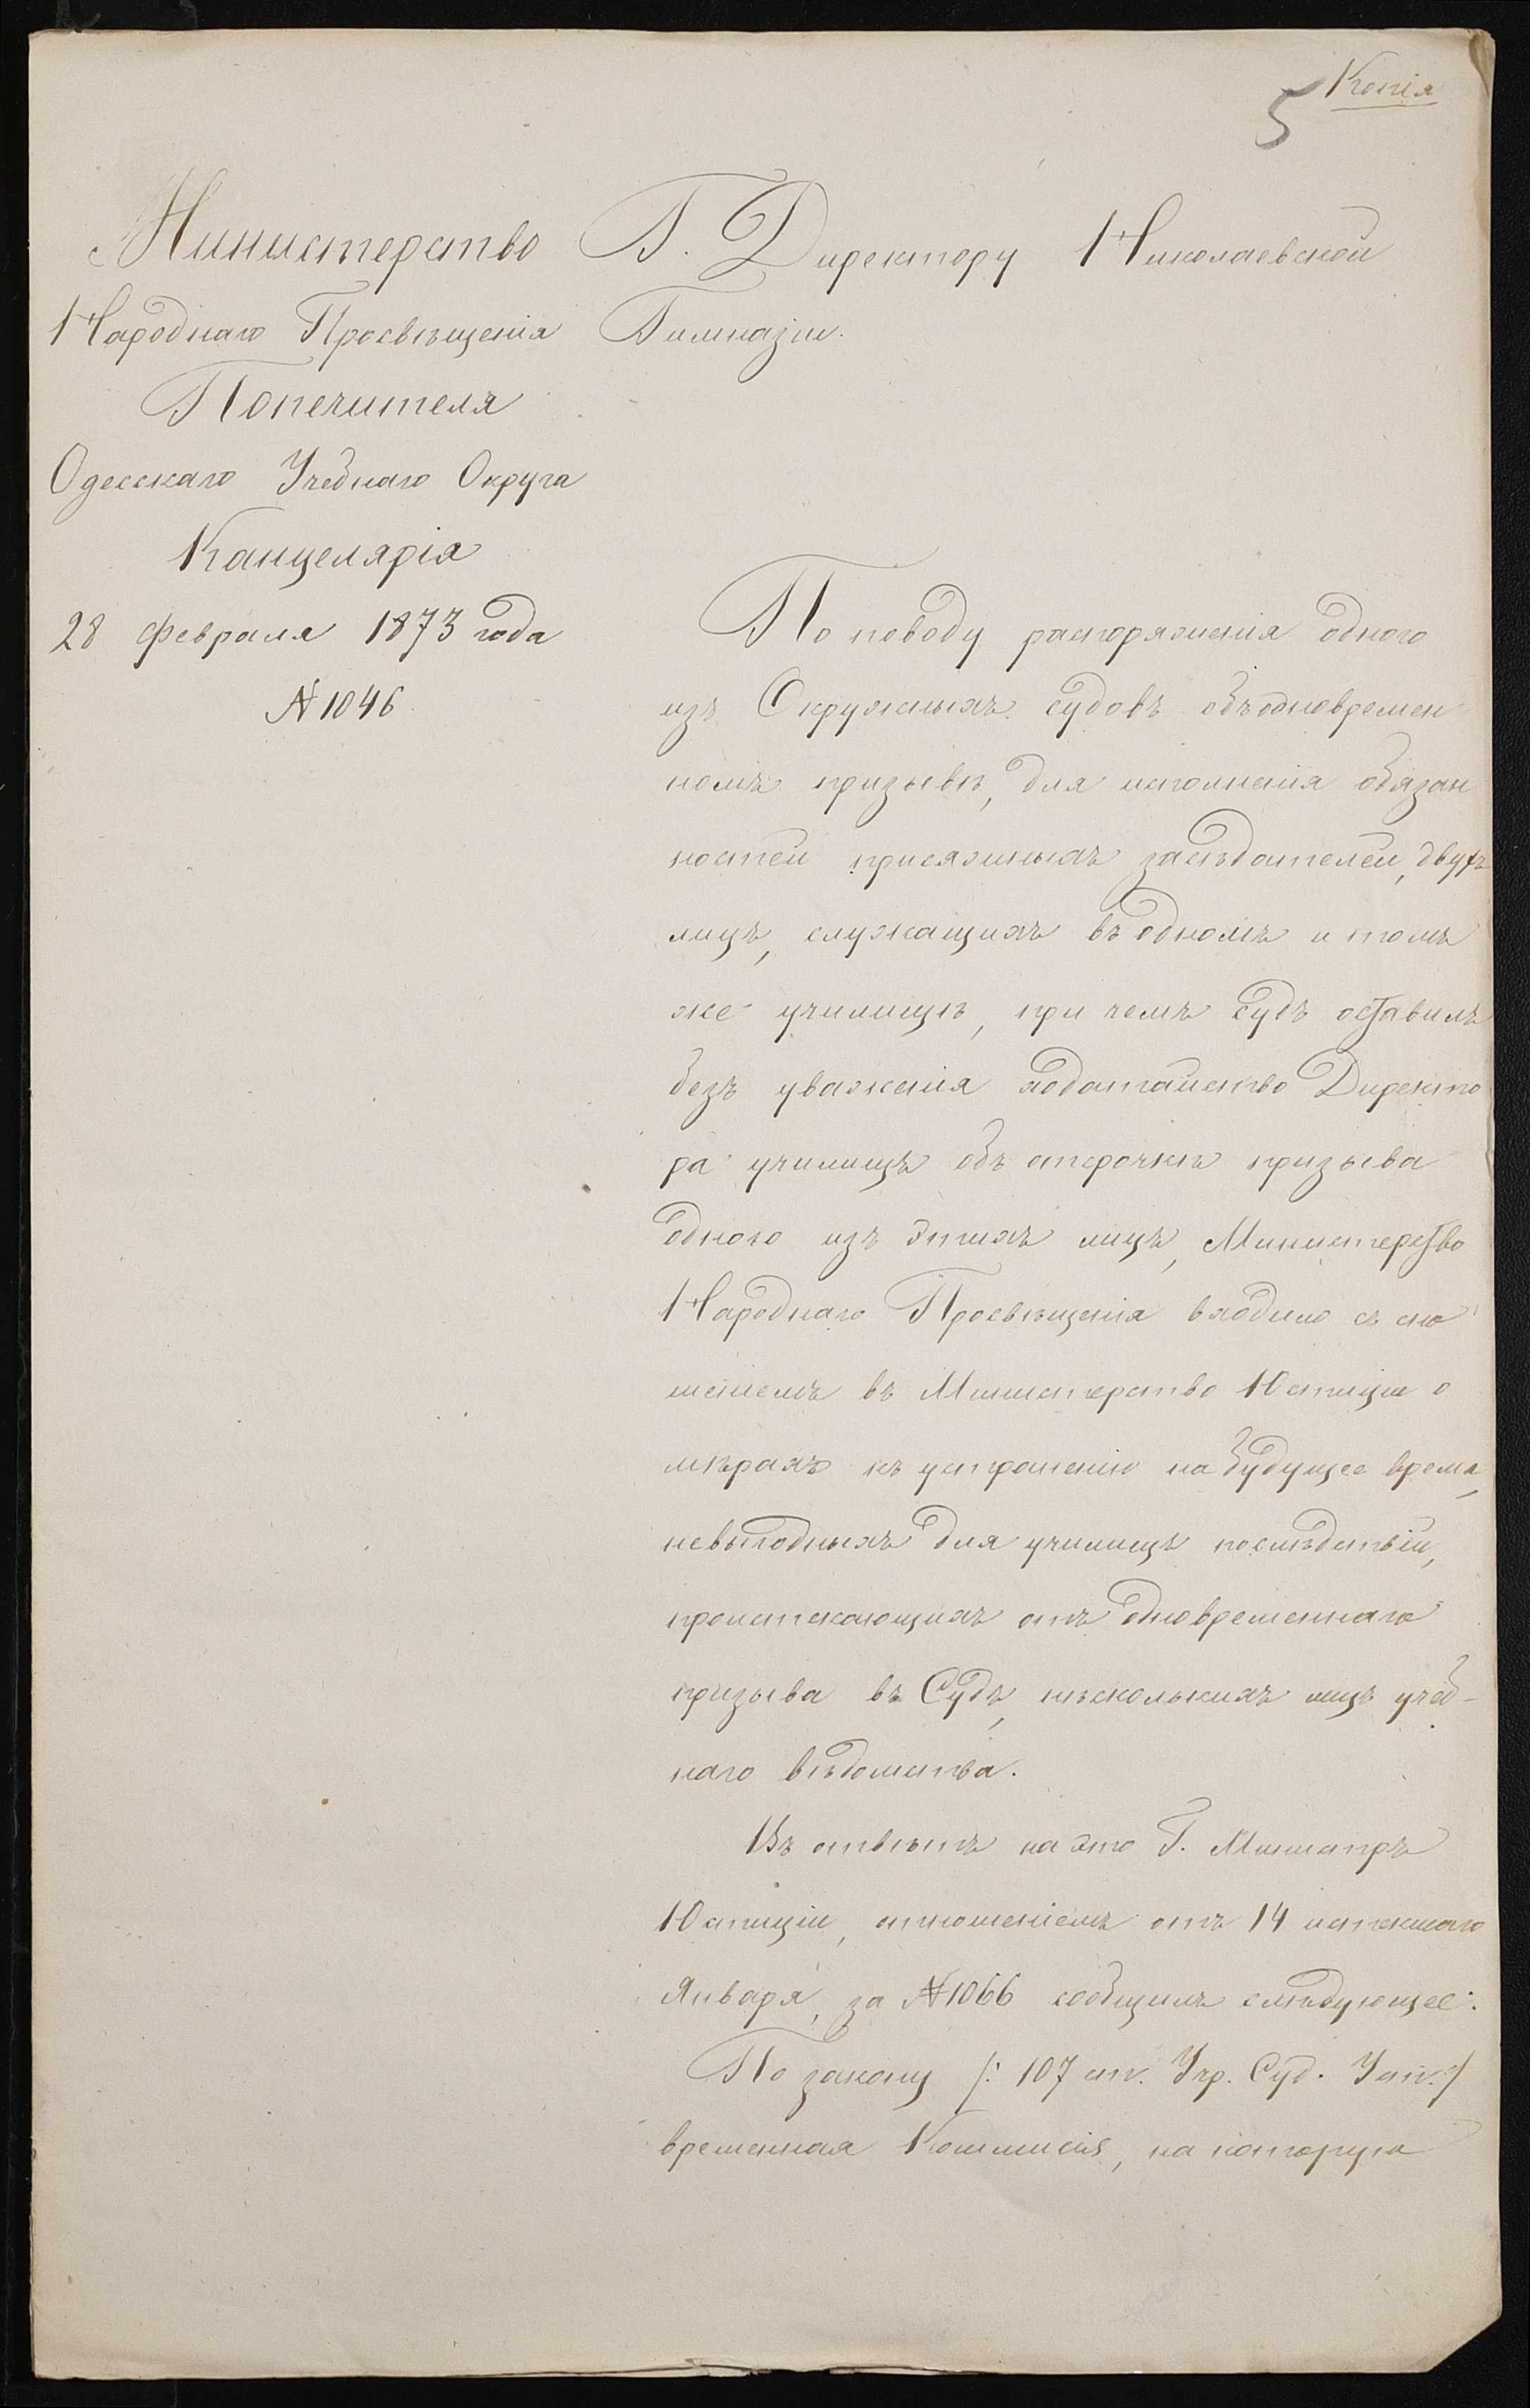 Копія
5
Министерство
Народнаго Просвѣщенія
Попечителя
Одесскаго Учебнаго Округа
Канцелярія
28 февраля 1873 года
№ 1046
Г. Директору Николаевской
Гимназіи.
По поводу распоряженія одного
изъ Окружныхъ судовъ объ одновремен
номъ призывѣ, для исполненія обязан
ностей присяжныхъ засѣдателей, двухъ
лицъ, служащихъ въ одномъ и томъ
же училищѣ, при чемъ судъ оставилъ
безъ уваженія ходатайство Директо
ра училищъ объ отсрочкѣ призыва
одного изъ этихъ лицъ, Министерство
Народнаго Просвѣщенія входило съ сно
шеніемъ въ Министерство Юстиціи о
мѣрахъ къ устраненію на будущее время,
невыгодныхъ для училищъ послѣдствій,
проистекающихъ отъ одновременнаго
призыва въ Судъ, нѣсколькихъ лицъ учеб-
наго вѣдомства.
Въ отвѣтъ на это Г. Министръ
Юстиціи, отношеніемъ отъ 14 истекшаго
Января, за № 1066 сообщилъ слѣдующее:
По закону /: 107 ст. Учр. Суд. Уст. :/
временная Коммисія, на которую